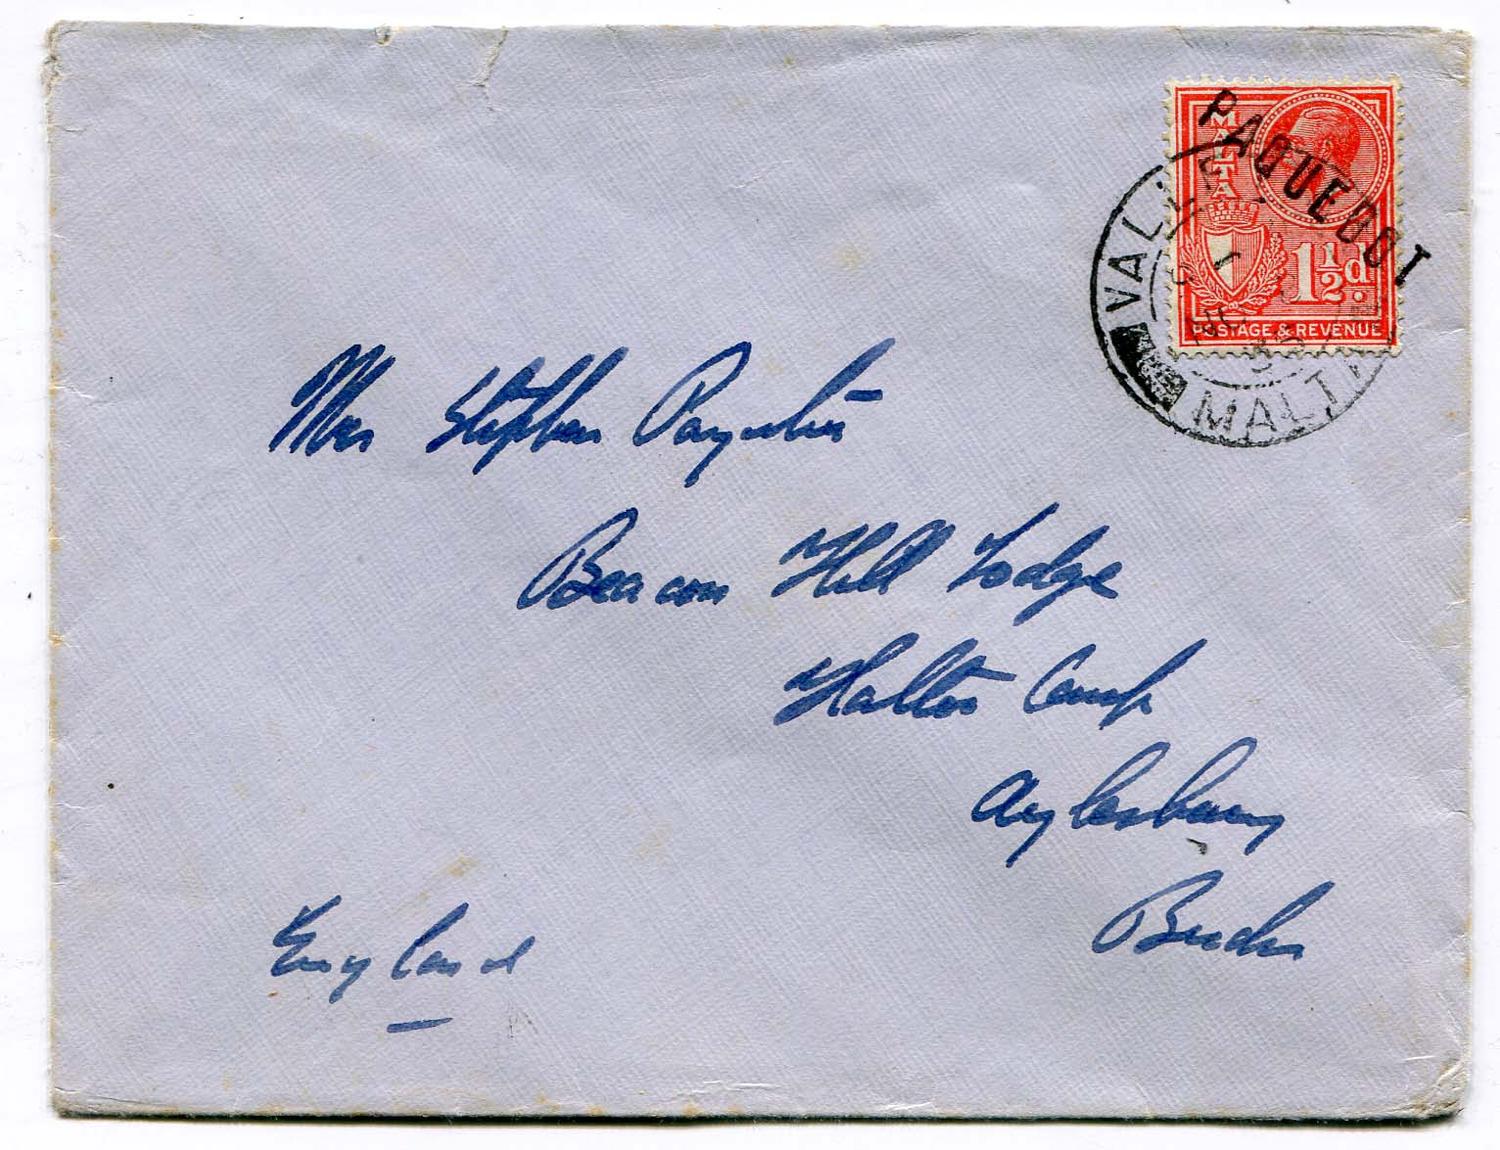 PAQUEBOT
MALTA
1½d.
POSTAGE & REVENUE
VALLETTA
MALTA
Mrs Stephen Paynter
Beacon Hill Lodge
Halton Camp
Aylesbury
Bucks
England